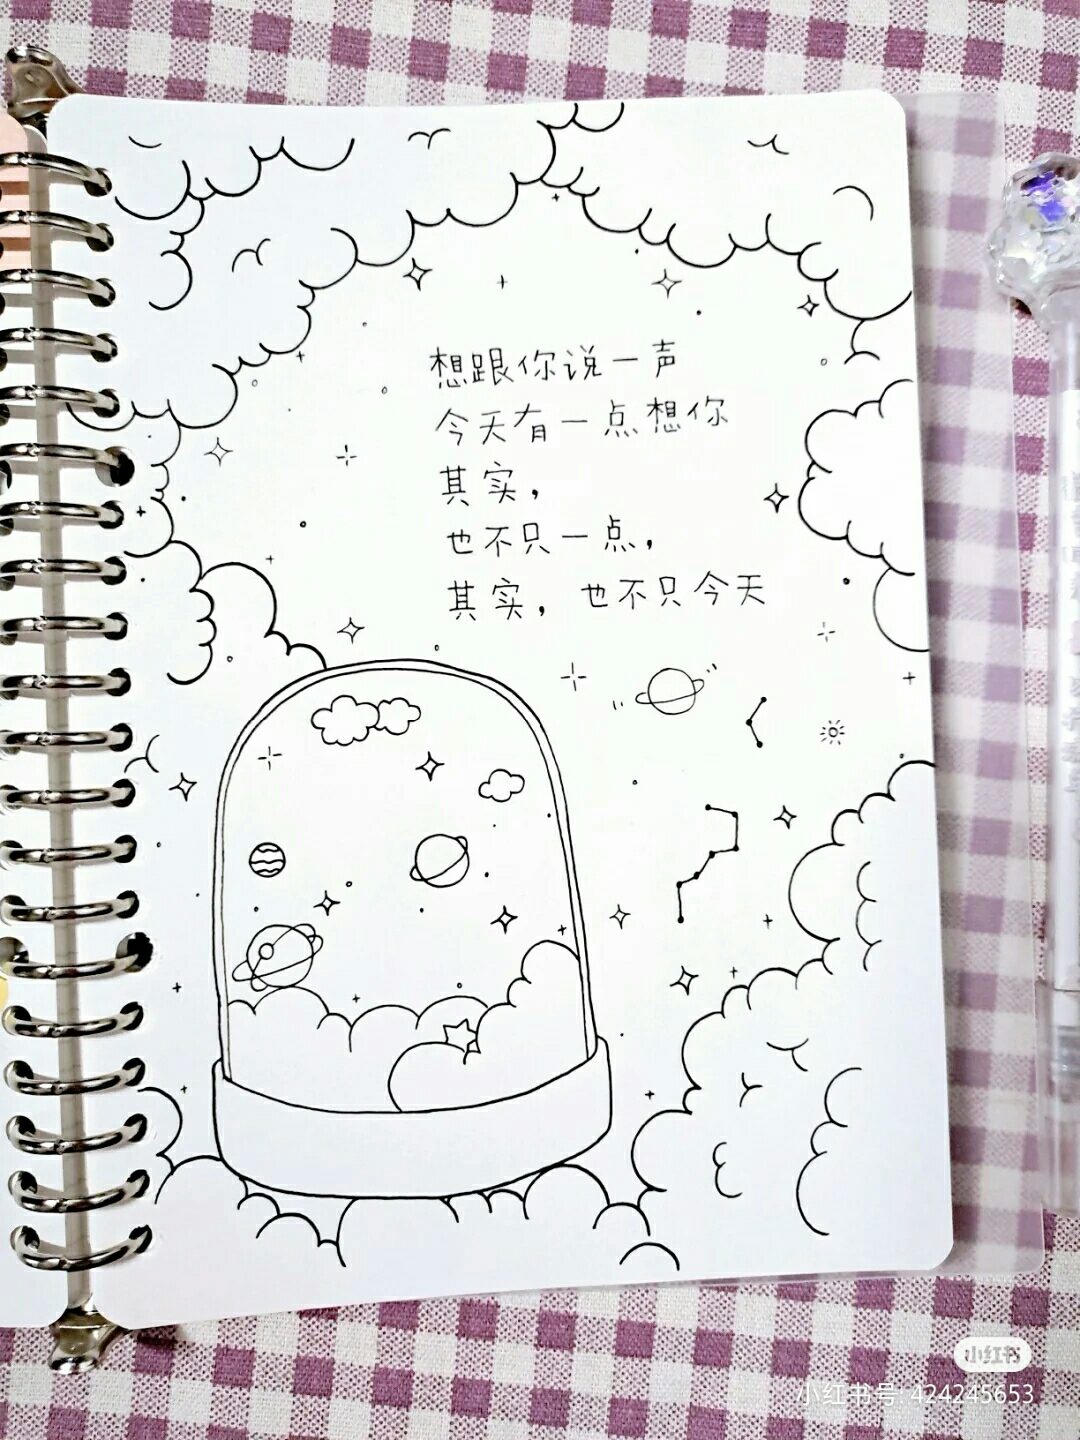 想跟你说一声
今天有一点想你
其实，
也不只一点，
其实，也不只今天
小红书
小红书号: 424245653